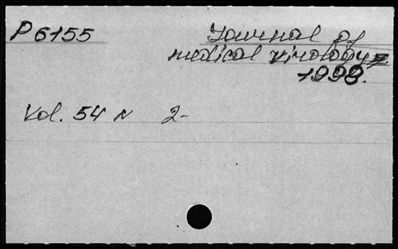 P6155 Journal of
medical virology
1998.
Vol. 54 N 2-